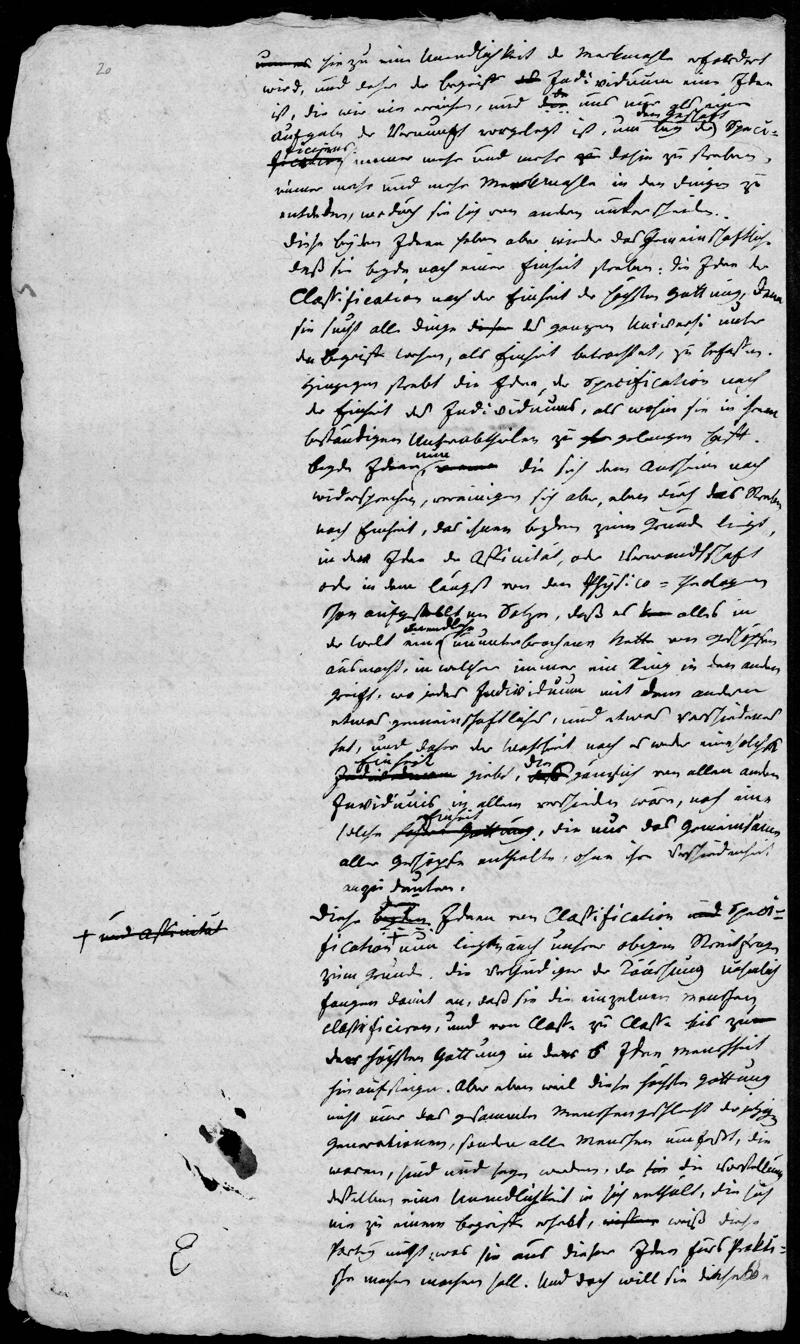 20
hiezu eine Unendlichkeit der Merkmahle erfordert
wird, und daher der Begriff Individuum eine Idee
ist, die wir nie erreichen, und die uns nur als eine
Aufgabe der Vernunft vorgelegt ist, um bey dem Geschäft des Speci=
ficirens immer mehr und mehr dahin zu streben,
immer mehr und mehr Merkmahle in den Dingen zu
entdecken, wodurch sie sich von andern unterscheiden.
Diese beyden Ideen haben aber wieder das Gemeinschaftliche
daß sie beyde nach einer Einheit streben: die Idee der
Classification nach der Einheit der höchsten Gattung, denn
sie sucht alle Dinge des ganzen Universi unter
den Begriff Wesen, als Einheit betrachtet, zu befassen.
Hingegen strebt die Idee der Specification nach
der Einheit des Individuums, als wohin sie in ihrem
beständigen Unterabtheilen zu gelangen hofft.
Beyde Ideen nun, die sich dem Anschein nach
widersprechen, vereinigen sich aber, eben durch das Streben
nach Einheit, das ihnen beyden zum Grunde liegt,
in der Idee der Affinität, oder Verwandtschaft
oder in dem längst von den Physico=Theologen
schon aufgestellten Satze, daß es alles in
der Welt eine unendliche ununterbrochene Kette von Geschöpfen
ausmacht, in welcher immer ein Ring in den andern
greift, wo jedes Individuum mit dem andern
etwas gemeinschaftliches, und etwas verschiedenes
hat, und daher der Wahrheit nach es weder eine solche
Einheit giebt, die gänzlich von allen andern
Individuis in allem verschieden wäre, noch eine
solche Einheit, die nur das Gemeinsame
aller Geschöpfe enthielte, ohne ihre Verschiedenheit
anzudeuten.
Diese Ideen von Classification und Speci=
fication nun liegen auch unsrer obigen Streitfrage
zum Grunde. Die Vertheidiger der Äußerung nehmlich
fangen damit an, daß sie die einzelnen Menschen
classificiren, und von Classe zu Classe bis zu
der höchsten Gattung in der Idee Menschheit
hinaufsteigen. Aber eben weil diese höchste Gattung
nicht nur das gesammte Menschengeschlecht der jetzigen
Generationen, sondern alle Menschen umfaßt, die
waren, sind und seyn werden, da die Vorstellung
desselben eine Unendlichkeit in sich enthält, die sich
nie zu einem Begriffe erhebt, weiß diese
Parthey nicht, was sie aus dieser Idee fürs Prakti=
sche machen soll. Und doch will sie dieselbe
+ und Affinität